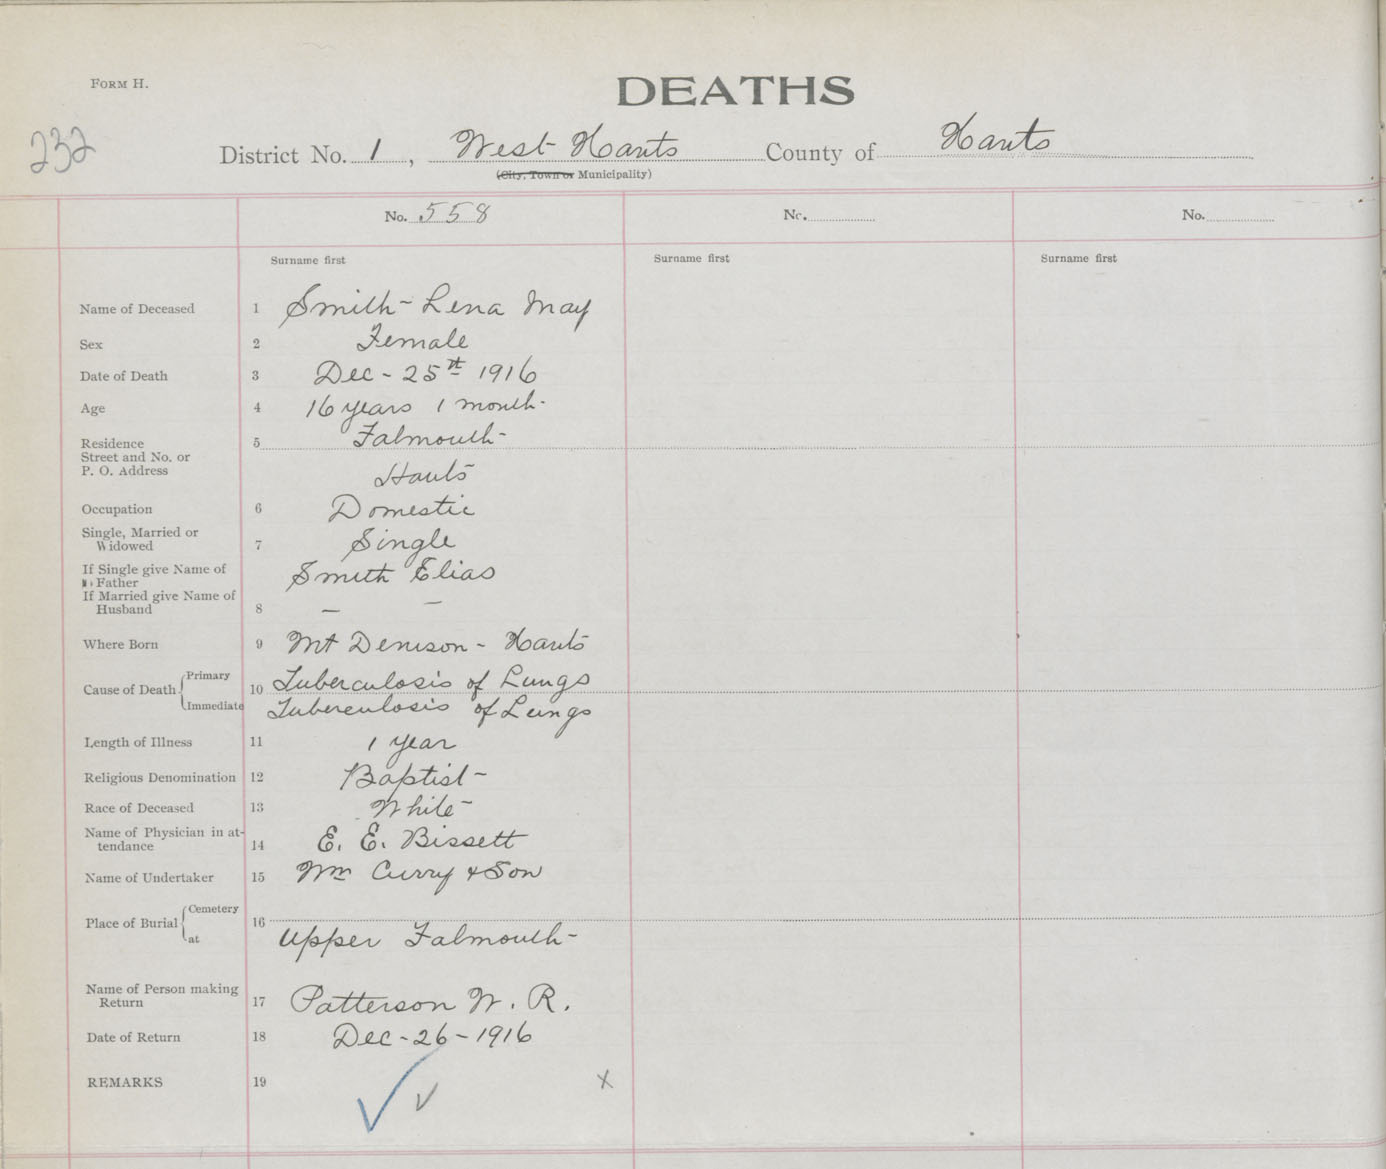 FORM H.
DEATHS
232
District No. 1, West Hants County of Hants
(City, Town or Municipality)
No. 558 No. No.
Surname first Surname first Surname first
Name of Deceased 1 Smith - Lena May
Sex 2 Female
Date of Death 3 Dec - 25th 1916
Age 4 16 years 1 month -
Residence 5 Falmouth -
Street and No. or
P. O. Address Hants
Occupation 6 Domestic
Single, Married or
Widowed 7 Single
If Single give Name of Smith Elias
Father
If Married give Name of
Husband 8 — —
Where Born 9 Mt Denison - Hants
Cause of Death { Primary 10 Tuberculosis of Lungs
Immediate Tuberculosis of Lungs
Length of Illness 11 1 year
Religious Denomination 12 Baptist -
Race of Deceased 13 White -
Name of Physician in at-
tendance 14 E. E. Bissett
Name of Undertaker 15 Wm Curry & Son
Place of Burial { Cemetery 16
at Upper Falmouth -
Name of Person making
Return 17 Patterson W. R.
Date of Return 18 Dec - 26 - 1916
REMARKS 19 ✓ ✓ x